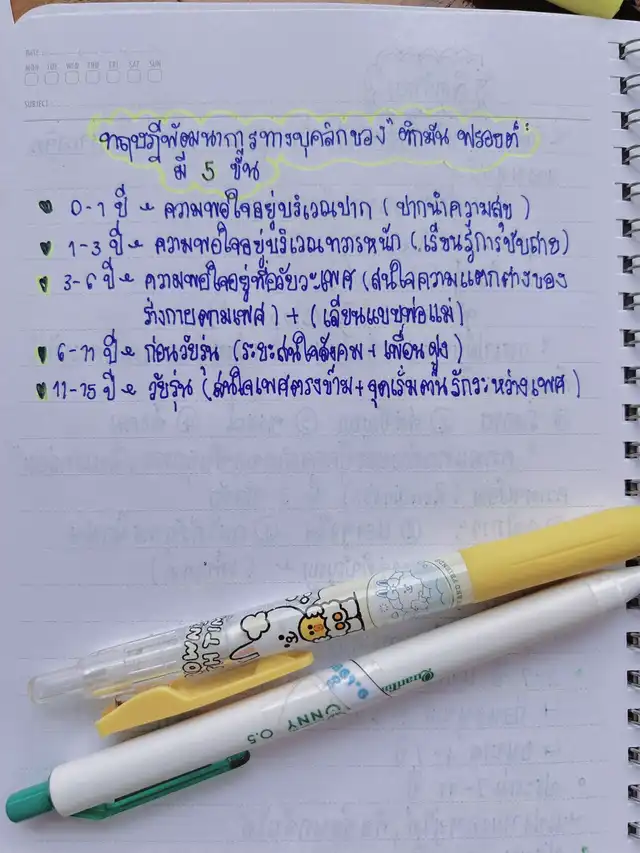 ทฤษฎีพัฒนาการทางบุคลิกของ "ซิกมัน ฟรอยด์"
มี 5 ขั้น
0-1 ปี ความพอใจอยู่บริเวณปาก (ปากนำความสุข)
1-3 ปี ความพอใจอยู่บริเวณทวารหนัก (เรียนรู้การขับถ่าย)
3-6 ปี ความพอใจอยู่ที่อวัยวะเพศ (สนใจความแตกต่างของ
ร่างกายตามเพศ) + (เลียนแบบพ่อแม่)
6-11 ปี ก่อนวัยรุ่น (ระยะสนใจสังคม + เพื่อนฝูง)
11-15 ปี วัยรุ่น (สนใจเพศตรงข้าม + จุดเริ่มต้นรักระหว่างเพศ)
Quantum
NNY 0.5